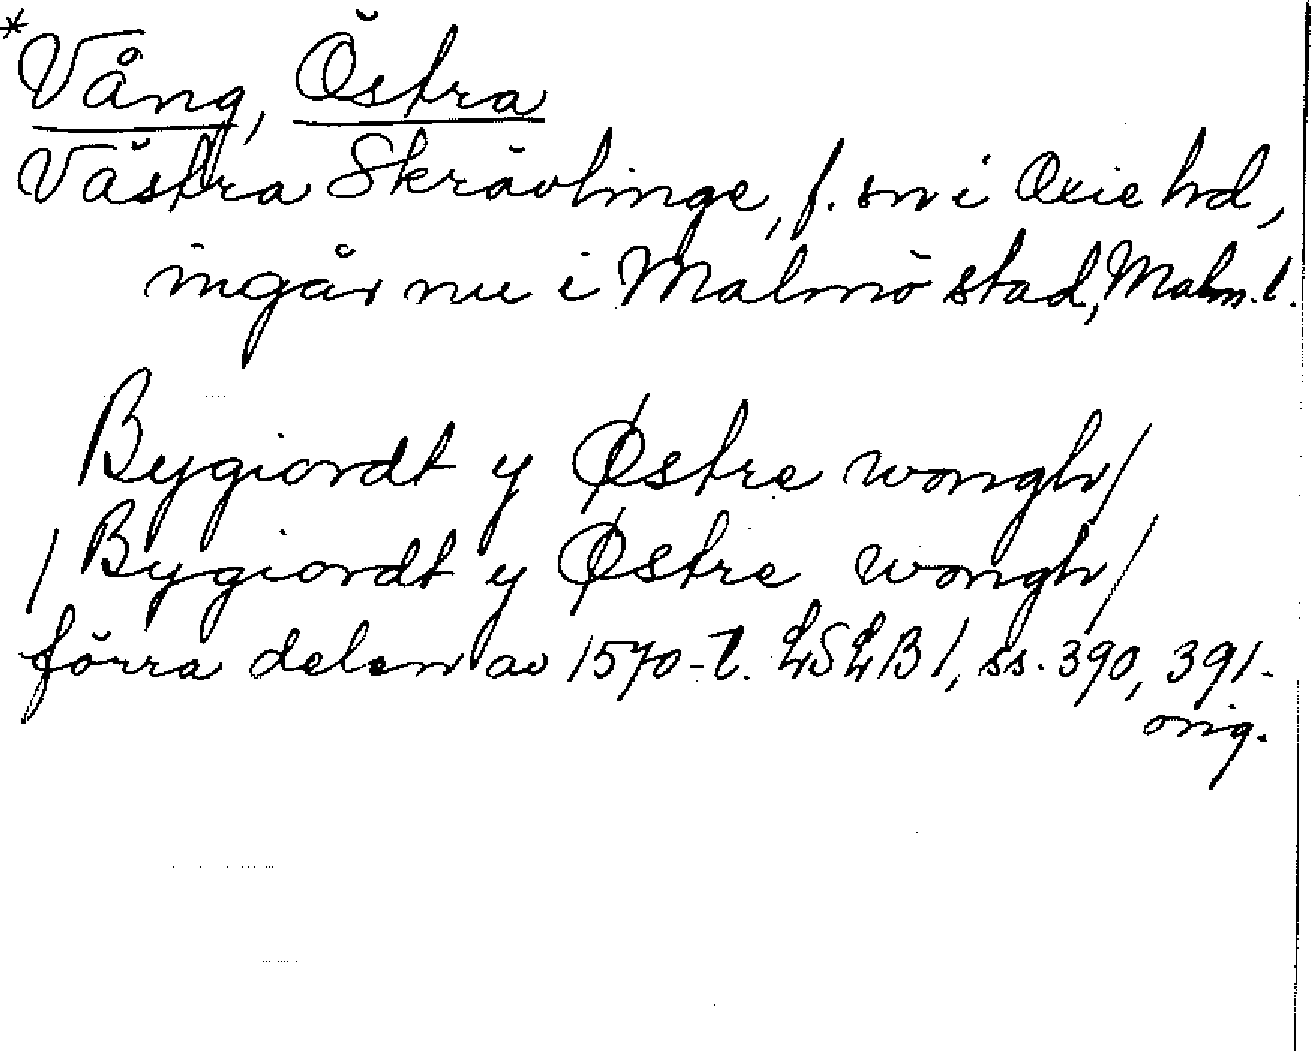 *Vång, Östra
Västra Skrävlinge, f. sn i Oxie hd,
ingår nu i Malmö stad, Malm. l.
Bygiordt y Østre wongh/
/Bygiordt y Østre wongh/
förra delen av 1570-t. LSLB 1, ss. 390, 391.
orig.